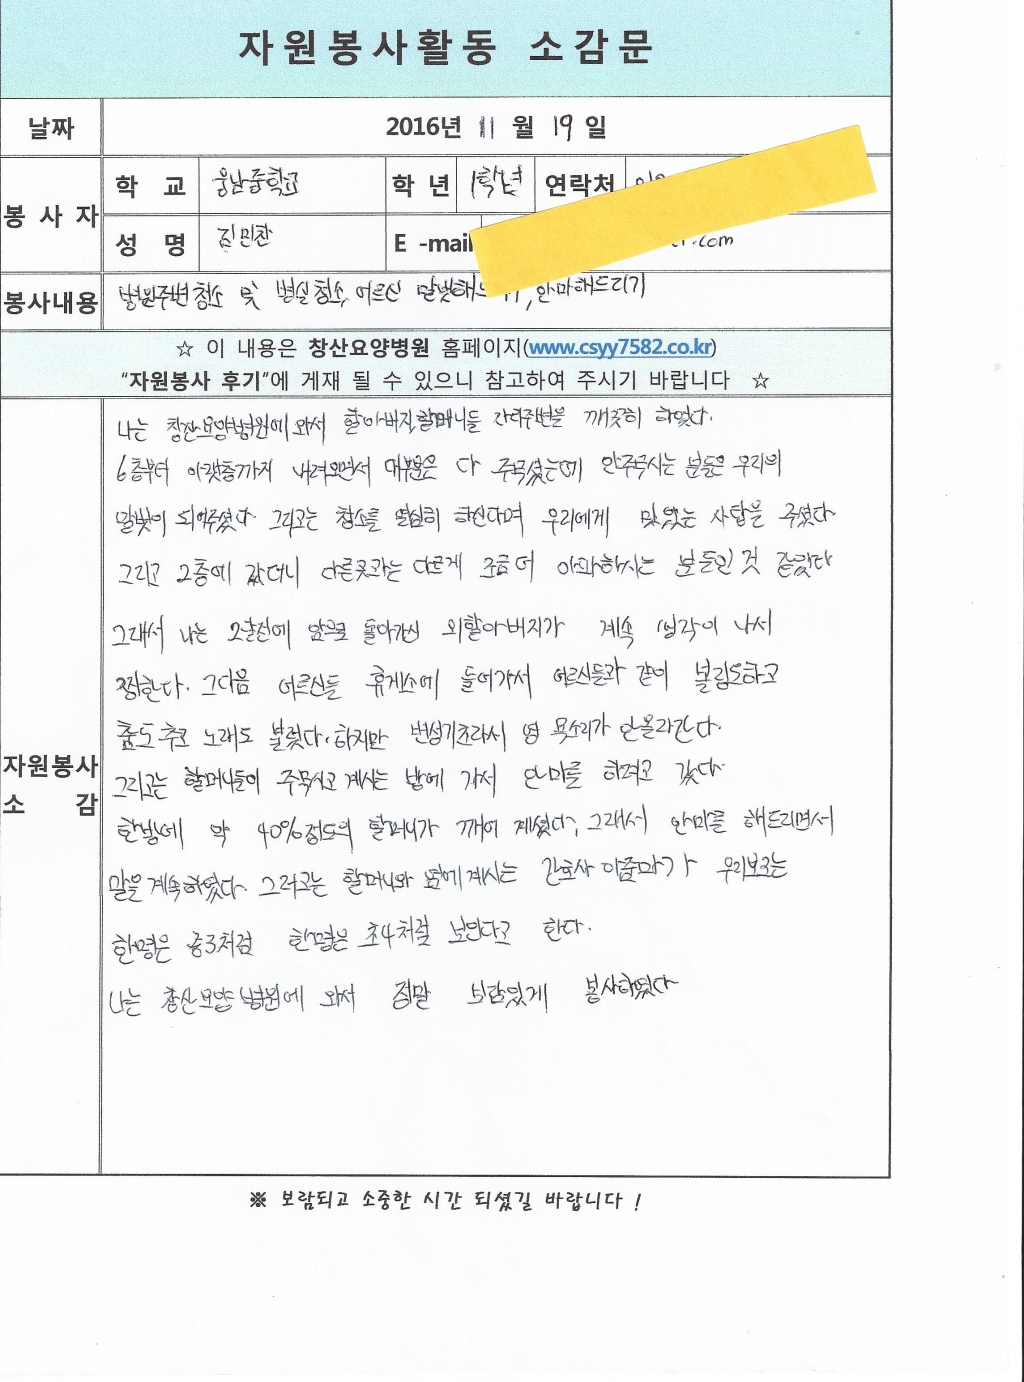 자원봉사활동 소감문
날짜 2016년 11 월 19 일
봉 사 자 학 교 웅남중학교 학 년 1학년 연락처
성 명 E -mail .com
봉사내용 병원주변청소 및 병실청소, 어르신 말벗해드 , 안마해드리기
☆ 이 내용은 창산요양병원 홈페이지(www.csyy7582.co.kr)
“자원봉사 후기”에 게재 될 수 있으니 참고하여 주시기 바랍니다 ☆
자원봉사
소 감
나는 창산요양병원에 와서 할아버지,할머니들 자리주변을 깨끗히 하였다.
6층부터 아랫층까지 내려오면서 대부분은 다 주무셨는데 안주무시는 분들은 우리의
말벗이 되어주셨다. 그리고는 청소를 열심히 하신다며 우리에게 맛있는 사탕을 주셨다
그리고 2층에 갔더니 다른곳과는 다르게 조금 더 아파하시는 분들인 것 같았다
그래서 나는 2살전에 암으로 돌아가신 외할아버지가 계속 생각이 나서
찡한다. 그다음 어르신들 휴게소에 들어가서 어르신들과 같이 볼링도하고
춤도 추고 노래도 불렀다. 하지만 변성기초라서 영 목소리가 안올라간다.
그리고는 할머니들이 주무시고 계시는 방에 가서 안마를 하려고 갔다.
한방에 약 40%정도의 할머니가 깨어 계셨다, 그래서 안마를 해드리면서
말을 계속하였다. 그러고는 할머니와 옆에계시는 간호사 아줌마가 우리보고는
한명은 중3처럼 한명은 초4처럼 보인다고 한다.
나는 창산요양병원에 와서 정말 보람있게 봉사하였다
※ 보람되고 소중한 시간 되셨길 바랍니다 !